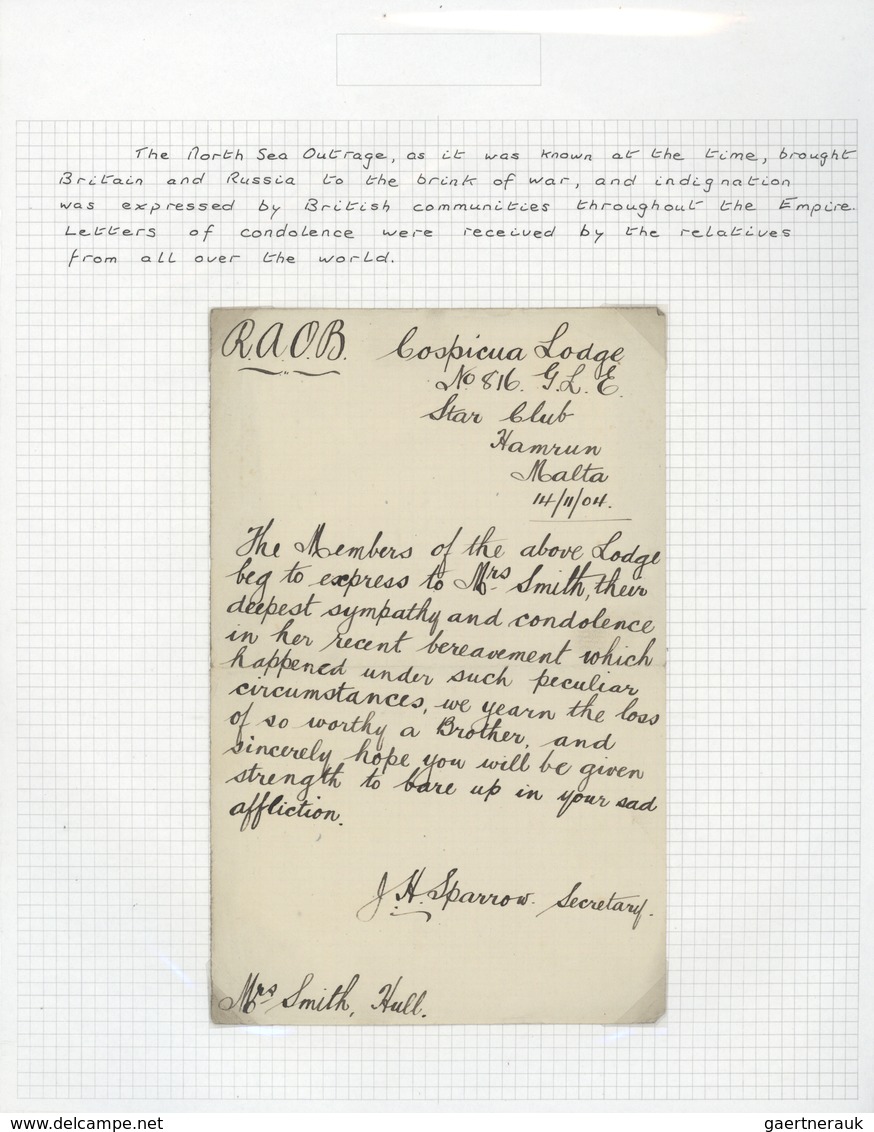 The North Sea Outrage, as it was known at the time, brought
Britain and Russia to the brink of war, and indignation
was expressed by British communities throughout the Empire.
Letters of condolence were received by the relatives
from all over the world.
R.A.O.B. Cospicua Lodge
No 816. G.L.E.
Star Club
Hamrun
Malta
14/11/04.
The Members of the above Lodge
beg to express to Mrs Smith, their
deepest sympathy and condolence
in her recent bereavement which
happened under such peculiar
circumstances, we yearn the loss
of so worthy a Brother, and
sincerely hope you will be given
strength to bare up in your sad
affliction.
J.H. Sparrow. Secretary.
Mrs Smith, Hull.
www.delcampe.net
gaertnerauk